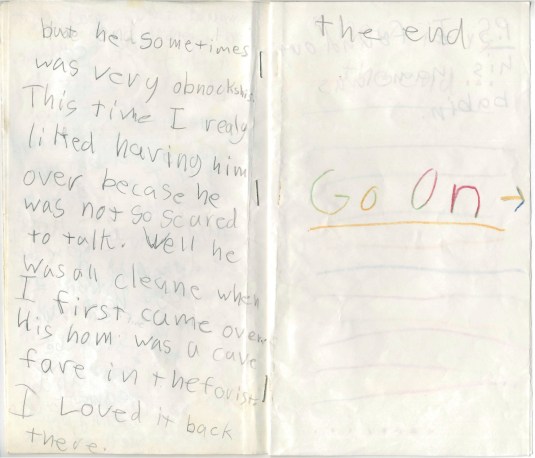 but he sometimes
was very obnockshis
This time I realy
liked having him
over becase he
was not so scared
to talk. Well he
was all cleane when
I first came over
His hom was a cave
fare in the forist
I Loved it back
there.
the end
Go On →